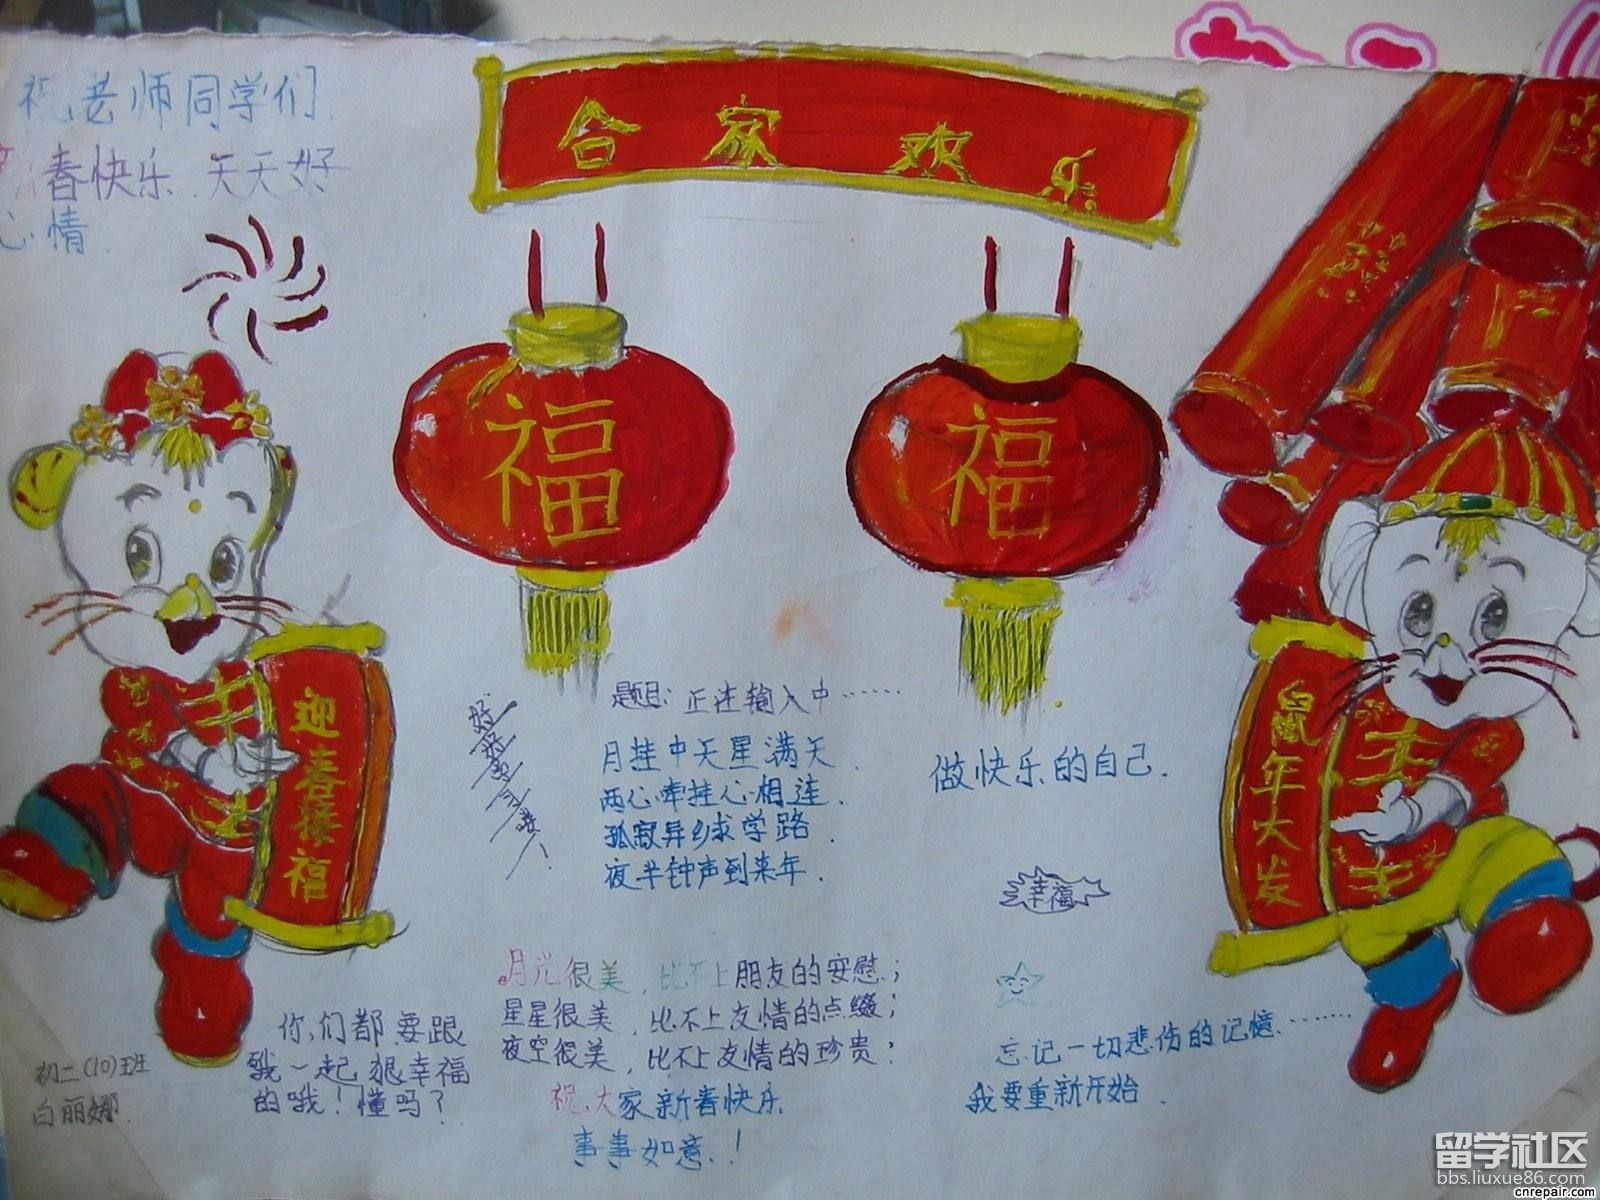 祝老师同学们
新春快乐.天天好
心情.
合家欢乐
福
福
迎春接福
鼠年大发
题目:正在输入中……
月挂中天星满天.
两心牵挂心相连.
孤寂异乡求学路.
夜半钟声到来年.
做快乐的自己.
幸福
月光很美,比不上朋友的安慰;
星星很美,比不上友情的点缀;
夜空很美,比不上友情的珍贵;
祝大家新春快乐
事事如意.!
忘记一切悲伤的记忆……
我要重新开始.
你们都要跟
我一起很幸福
的哦!懂吗?
初二(10)班
白丽娜.
留学社区
bbs.liuxue86.com
cnrepair.com